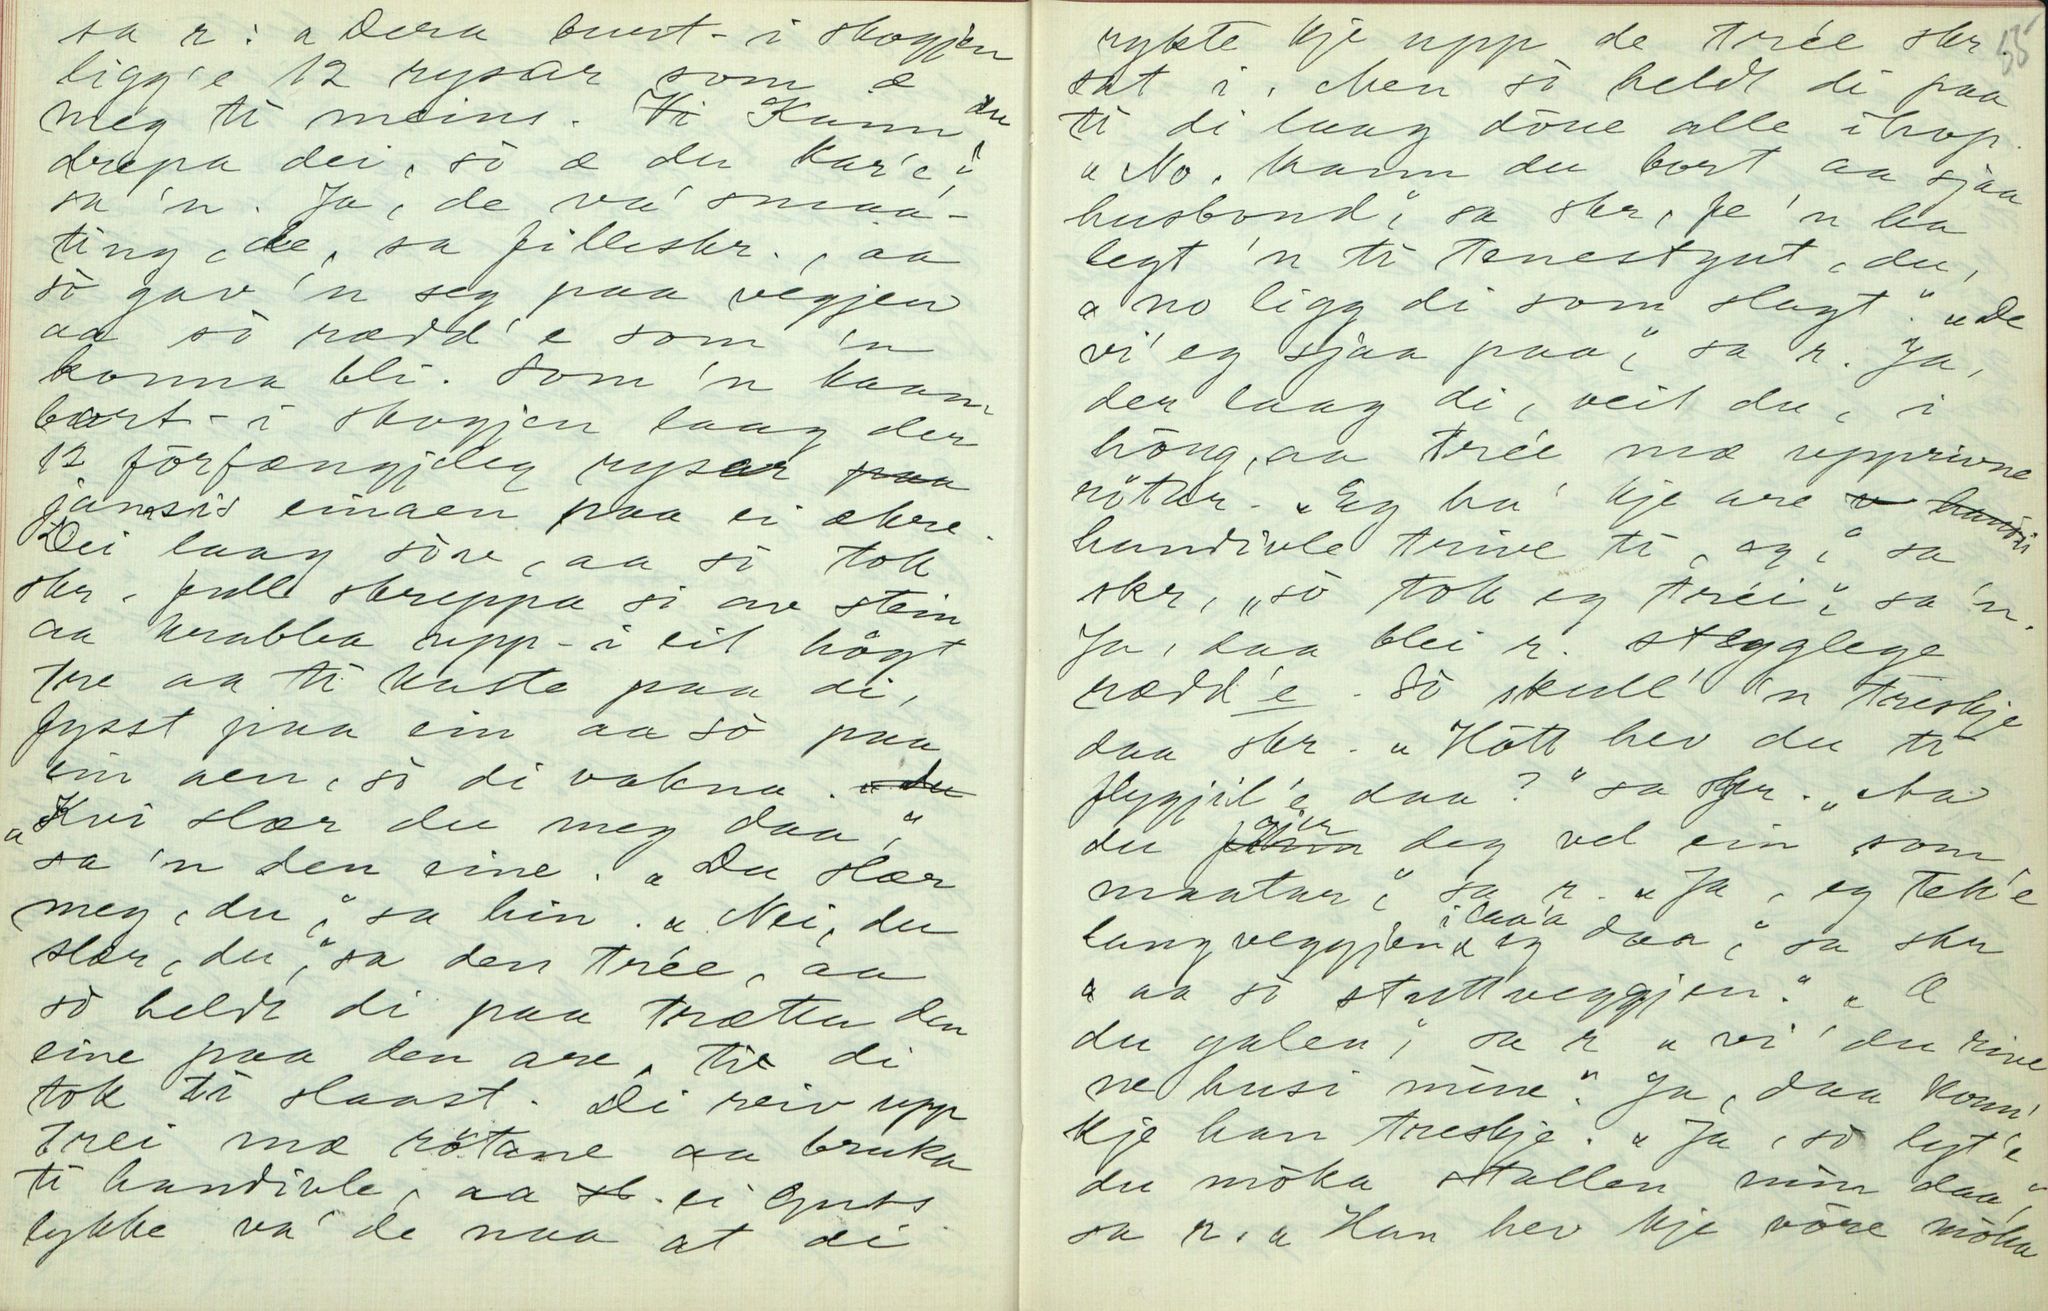 sa r: „Dera burt-i skogjen
ligg'e 12 rysar som æ
meg ti meins. Kann du
drepa dei, sò æ du kar'e,"
sa 'n. Ja, de va' smaa-
ting, de, sa filleskr., aa
sò gav 'n seg paa vegjen
aa sò rædd'e som 'n
konna bli. Som 'n kaam
bort-i skogjen laag der
12 förfængjeleg rysar paa
jamsis einaen paa ei økre.
Dei laag söve, aa sò tok
skr. full skreppa si av stein
aa krabba upp-i eit högt
tre aa ti kaste paa di,
fysst paa ein aa sò paa
ein aen, sò di vakna. „du
„Kvi slær du meg daa,"
sa 'n den eine. „Du slær
meg, du," sa hin. „Nei, du
slær, du," sa den trée, aa
sò heldt di paa trætta den
eine paa den are, tie di
tok ti slaast. Di reiv upp
trei mæ rötane aa bruka
ti handivle, aa sb. ei Guds
lykke va' de naa at di
55
rykte kje upp de trée skr.
sat i. Men sò heldt di paa
ti di laag döue alle ihop.
„No, kann du bort aa sjaa
husbond," sa skr, fe 'n ha
legt 'n ti tenestgut, du,
„no ligg di som slagt." „De
vi' eg sjaa paa," sa r. Ja,
der laag di, veit du, i
höng, aa trée mæ upprivne
rötar. „Eg ha' kje are
handivle trive ti, eg," sa
skr, „sò tok eg tréi," sa 'n.
Ja, daa blei r. stygglege
rædd'e. Sò skull' 'n treskje
daa skr. „Hött hev du ti
flygjil'e daa?" sa skr. „Aa
du gjer deg vel ein som
maatar," sa r. „Ja, eg tek'e
langveggjen i laa'a eg daa," sa skr
„aa sò stuttveggjen." „Æ
du galen," sa r „vi' du rive
ne husi mine." Ja, daa konn'
kje han treskje. „Ja, sò lyt'e
du möka stallen min daa,"
sa r. „Han hev kje vöre möka